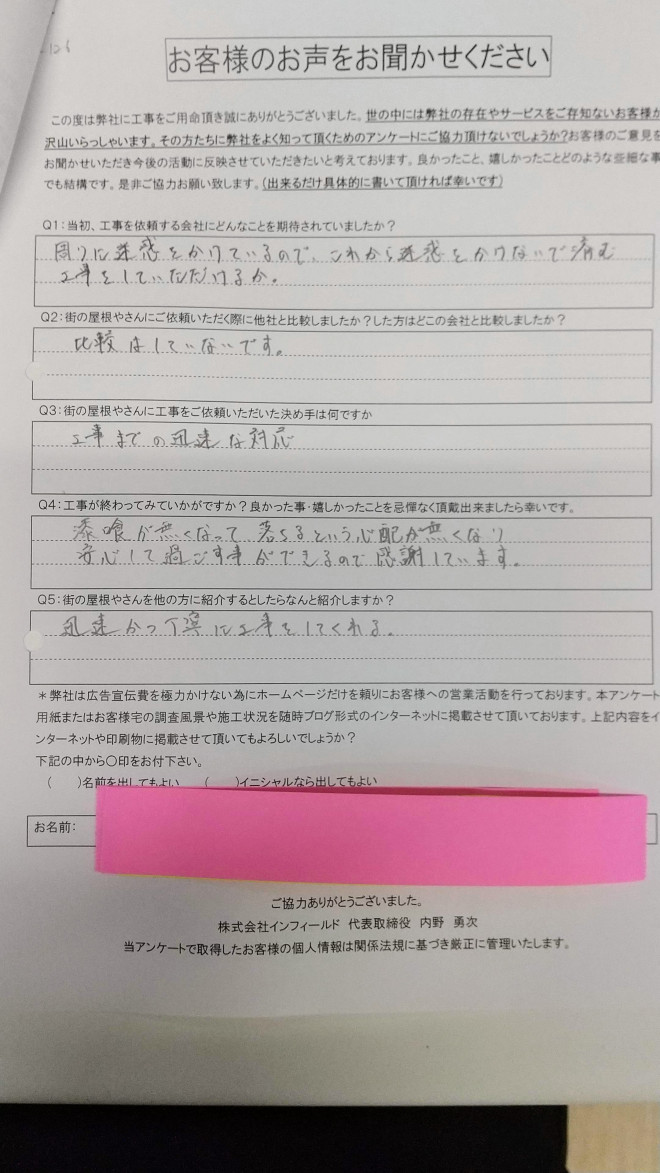 126
お客様のお声をお聞かせください
この度は弊社に工事をご用命頂き誠にありがとうございました。世の中には弊社の存在やサービスをご存知ないお客様が
沢山いらっしゃいます。その方たちに弊社をよく知って頂くためのアンケートにご協力頂けないでしょうか?お客様のご意見を
お聞かせいただき今後の活動に反映させていただきたいと考えております。良かったこと、嬉しかったことどのような些細な事
でも結構です。是非ご協力お願い致します。(出来るだけ具体的に書いて頂ければ幸いです)
Q1:当初、工事を依頼する会社にどんなことを期待されていましたか?
周りに迷惑をかけているので、これから迷惑をかけないで済む
工事をしていただけるか。
Q2:街の屋根やさんにご依頼いただく際に他社と比較しましたか?した方はどこの会社と比較しましたか?
比較はしていないです。
Q3:街の屋根やさんに工事をご依頼いただいた決め手は何ですか
工事までの迅速な対応
Q4:工事が終わってみていかがですか?良かった事・嬉しかったことを忌憚なく頂戴出来ましたら幸いです。
漆喰が無くなって落ちるという心配が無くなり
安心して過ごす事ができるので感謝しています。
Q5:街の屋根やさんを他の方に紹介するとしたらなんと紹介しますか?
迅速かつ丁寧に工事をしてくれる。
*弊社は広告宣伝費を極力かけない為にホームページだけを頼りにお客様への営業活動を行っております。本アンケート
用紙またはお客様宅の調査風景や施工状況を随時ブログ形式のインターネットに掲載させて頂いております。上記内容をイ
ンターネットや印刷物に掲載させて頂いてもよろしいでしょうか?
下記の中から〇印をお付下さい。
( )名前を出してもよい ( )イニシャルなら出してもよい
お名前:
ご協力ありがとうございました。
株式会社インフィールド 代表取締役 内野 勇次
当アンケートで取得したお客様の個人情報は関係法規に基づき厳正に管理いたします。